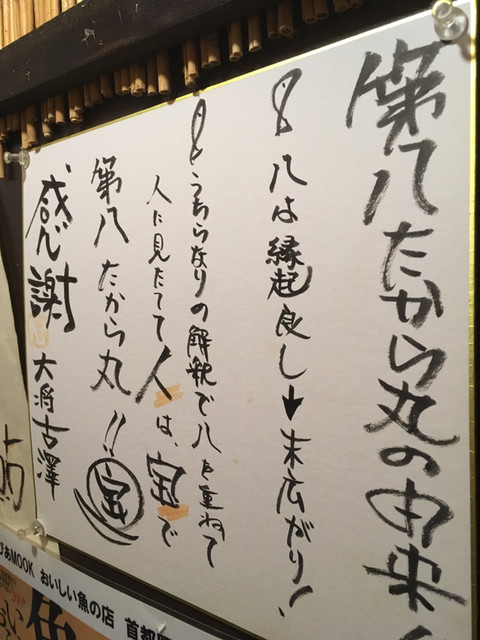 第八たから丸の由来!
8 八は縁起良し→末広がり!
8とうちらなりの解釈で八を重ねて
人に見たてて人は、宝で
第八たから丸!! 宝
感謝 大将古澤
ぴあMOOK おいしい魚の店 首都